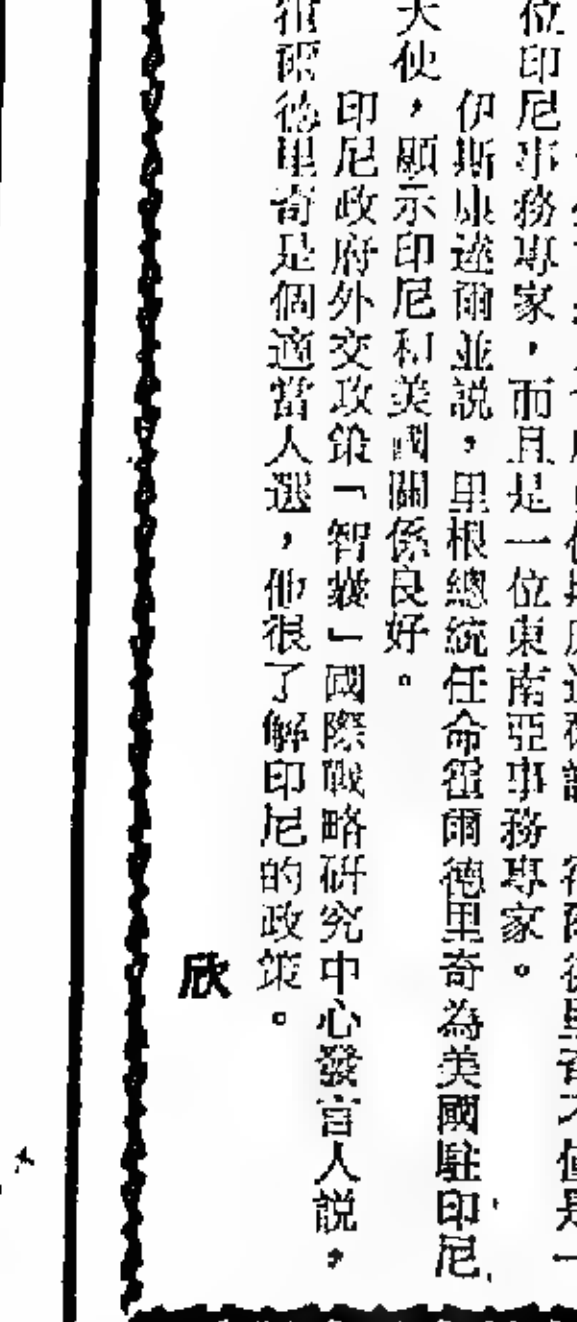 位印尼事務專家，而且是一位東南亞事務專家。
伊斯康達爾並説，里根總統任命霍爾德里奇為美國駐印尼
大使，顯示印尼和美國關係良好。
印尼政府外交政策「智囊」國際戰略研究中心發言人説，
霍爾德里奇是個適當人選，他很了解印尼的政策。
欣